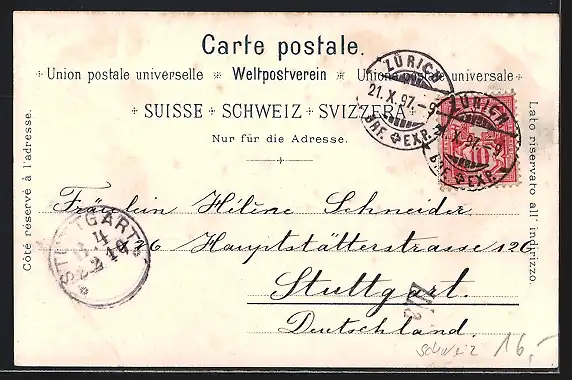 Carte postale.
Union postale universelle Weltpostverein Unione postale universale
SUISSE SCHWEIZ SVIZZERA
Nur für die Adresse.
Côté réservé à l'adresse.
Lato riservato all' indirizzo.
ZÜRICH
21.X.97.-9
BRE. EXP.
ZÜRICH
X.97.-9
BRF. EXP.
Fräulein Hélène Schneider
126 Hauptstätterstrasse 126
Stuttgart.
Deutschland.
STUTTGART
schweiz 16,-